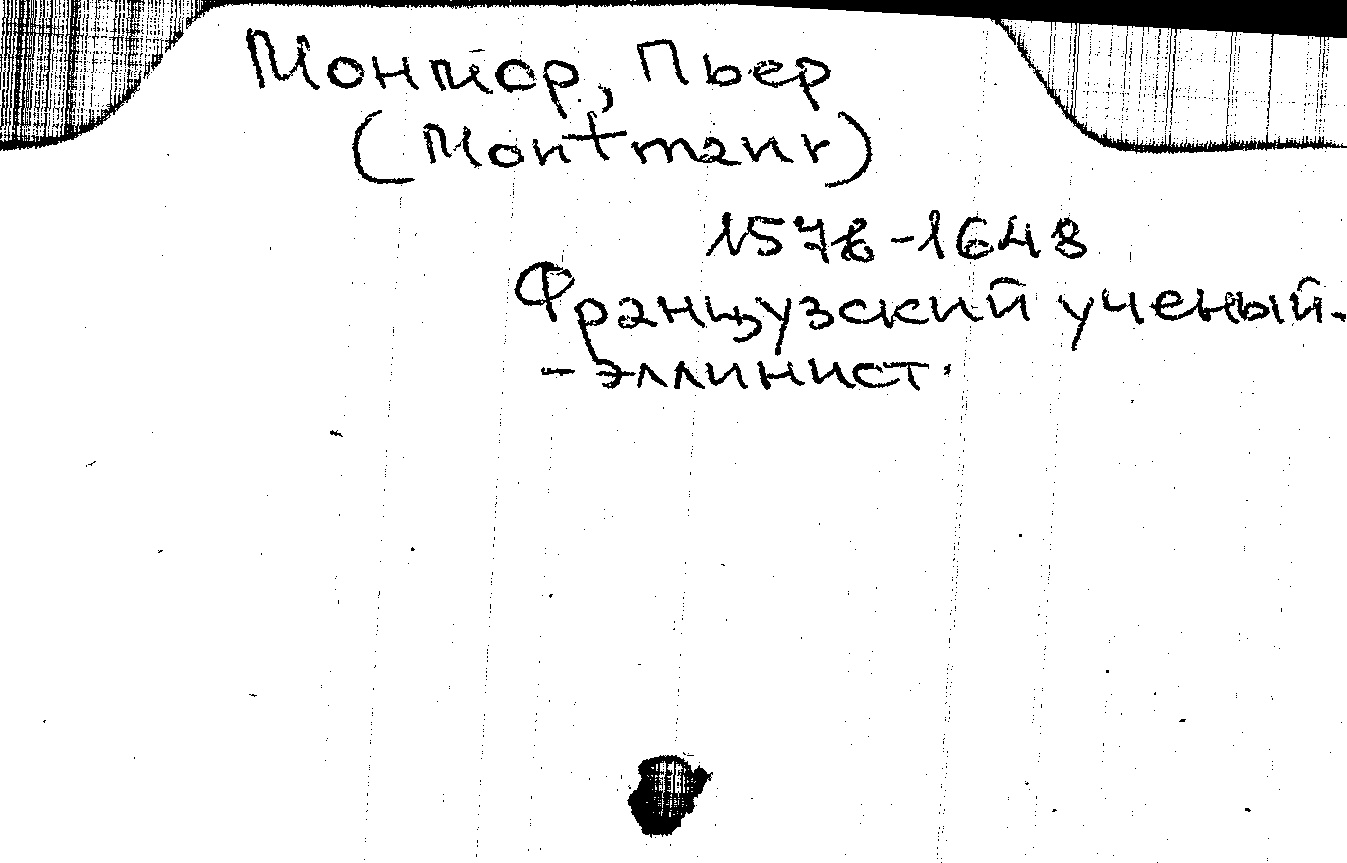 Монмор, Пьер
(Montmaur)
1578-1648
Французский ученый-
-эллинист.